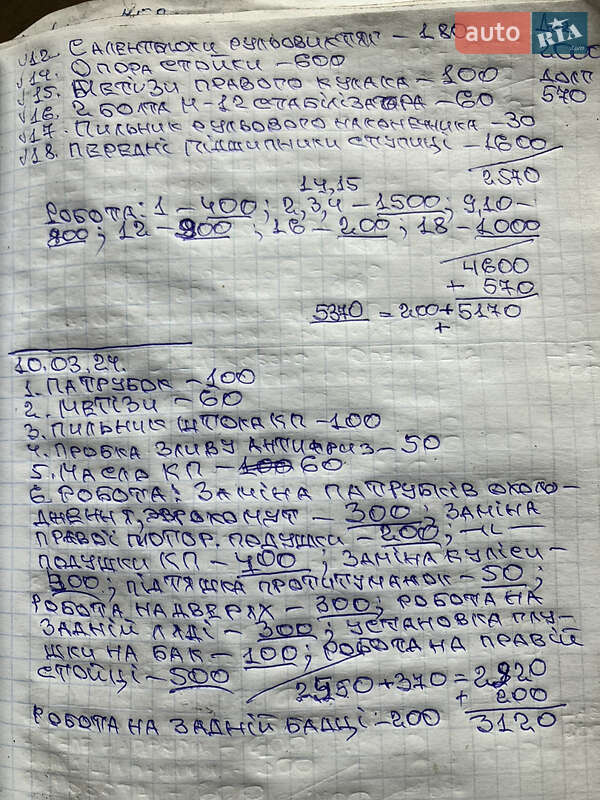 auto RIA.com
√12. САЛЕНТБЛОКИ РУЛЬОВИХ ТЯГ – 180
√14. ОПОРА СТОЙКИ – 600
√15. МЕТИЗИ ПРАВОГО КУЛАКА – 100
√16. 2 БОЛТА М-12 СТАБІЛІЗАТОРА – 60
570
√17. ПИЛЬНИК РУЛЬОВОГО НАКОНЕЧНИКА – 30
√18. ПЕРЕДНІ ПІДШИПНИКИ СТУПИЦІ – 1600
2570
14,15
РОБОТА: 1 – 400; 2,3,4 – 1500; 9,10 –
900; 12 – 900; 16 – 200; 18 – 1000
4600
+ 570
5370 = 200 + 5170
+
10.03.24.
1. ПАТРУБОК – 100
2. МЕТІЗИ – 60
3. ПИЛЬНИК ШТОКА КП – 100
4. ПРОБКА ЗЛИВУ АНТИФРИЗ – 50
5. МАСЛО КП – 100 60
6. РОБОТА: ЗАМІНА ПАТРУБКІВ ОХОЛО-
ДЖЕННЯ, ЄВРОХОМУТ – 300; ЗАМІНА
ПРАВОЇ МОТОР. ПОДУШКИ – 200; –||–
ПОДУШКИ КП – 400; ЗАМІНА КУЛІСИ –
900; ПІДТЯЖКА ПРОТИТУМАНОК – 50;
РОБОТА НА ДВЕРЯХ – 300; РОБОТА НА
ЗАДНІЙ ЛЯДІ – 300; УСТАНОВКА ГЛУ-
ШКИ НА БАК – 100; РОБОТА НА ПРАВІЙ
СТОЙЦІ – 500
2550 + 370 = 2920
+ 200
РОБОТА НА ЗАДНІЙ БАЛЦІ – 200 3120